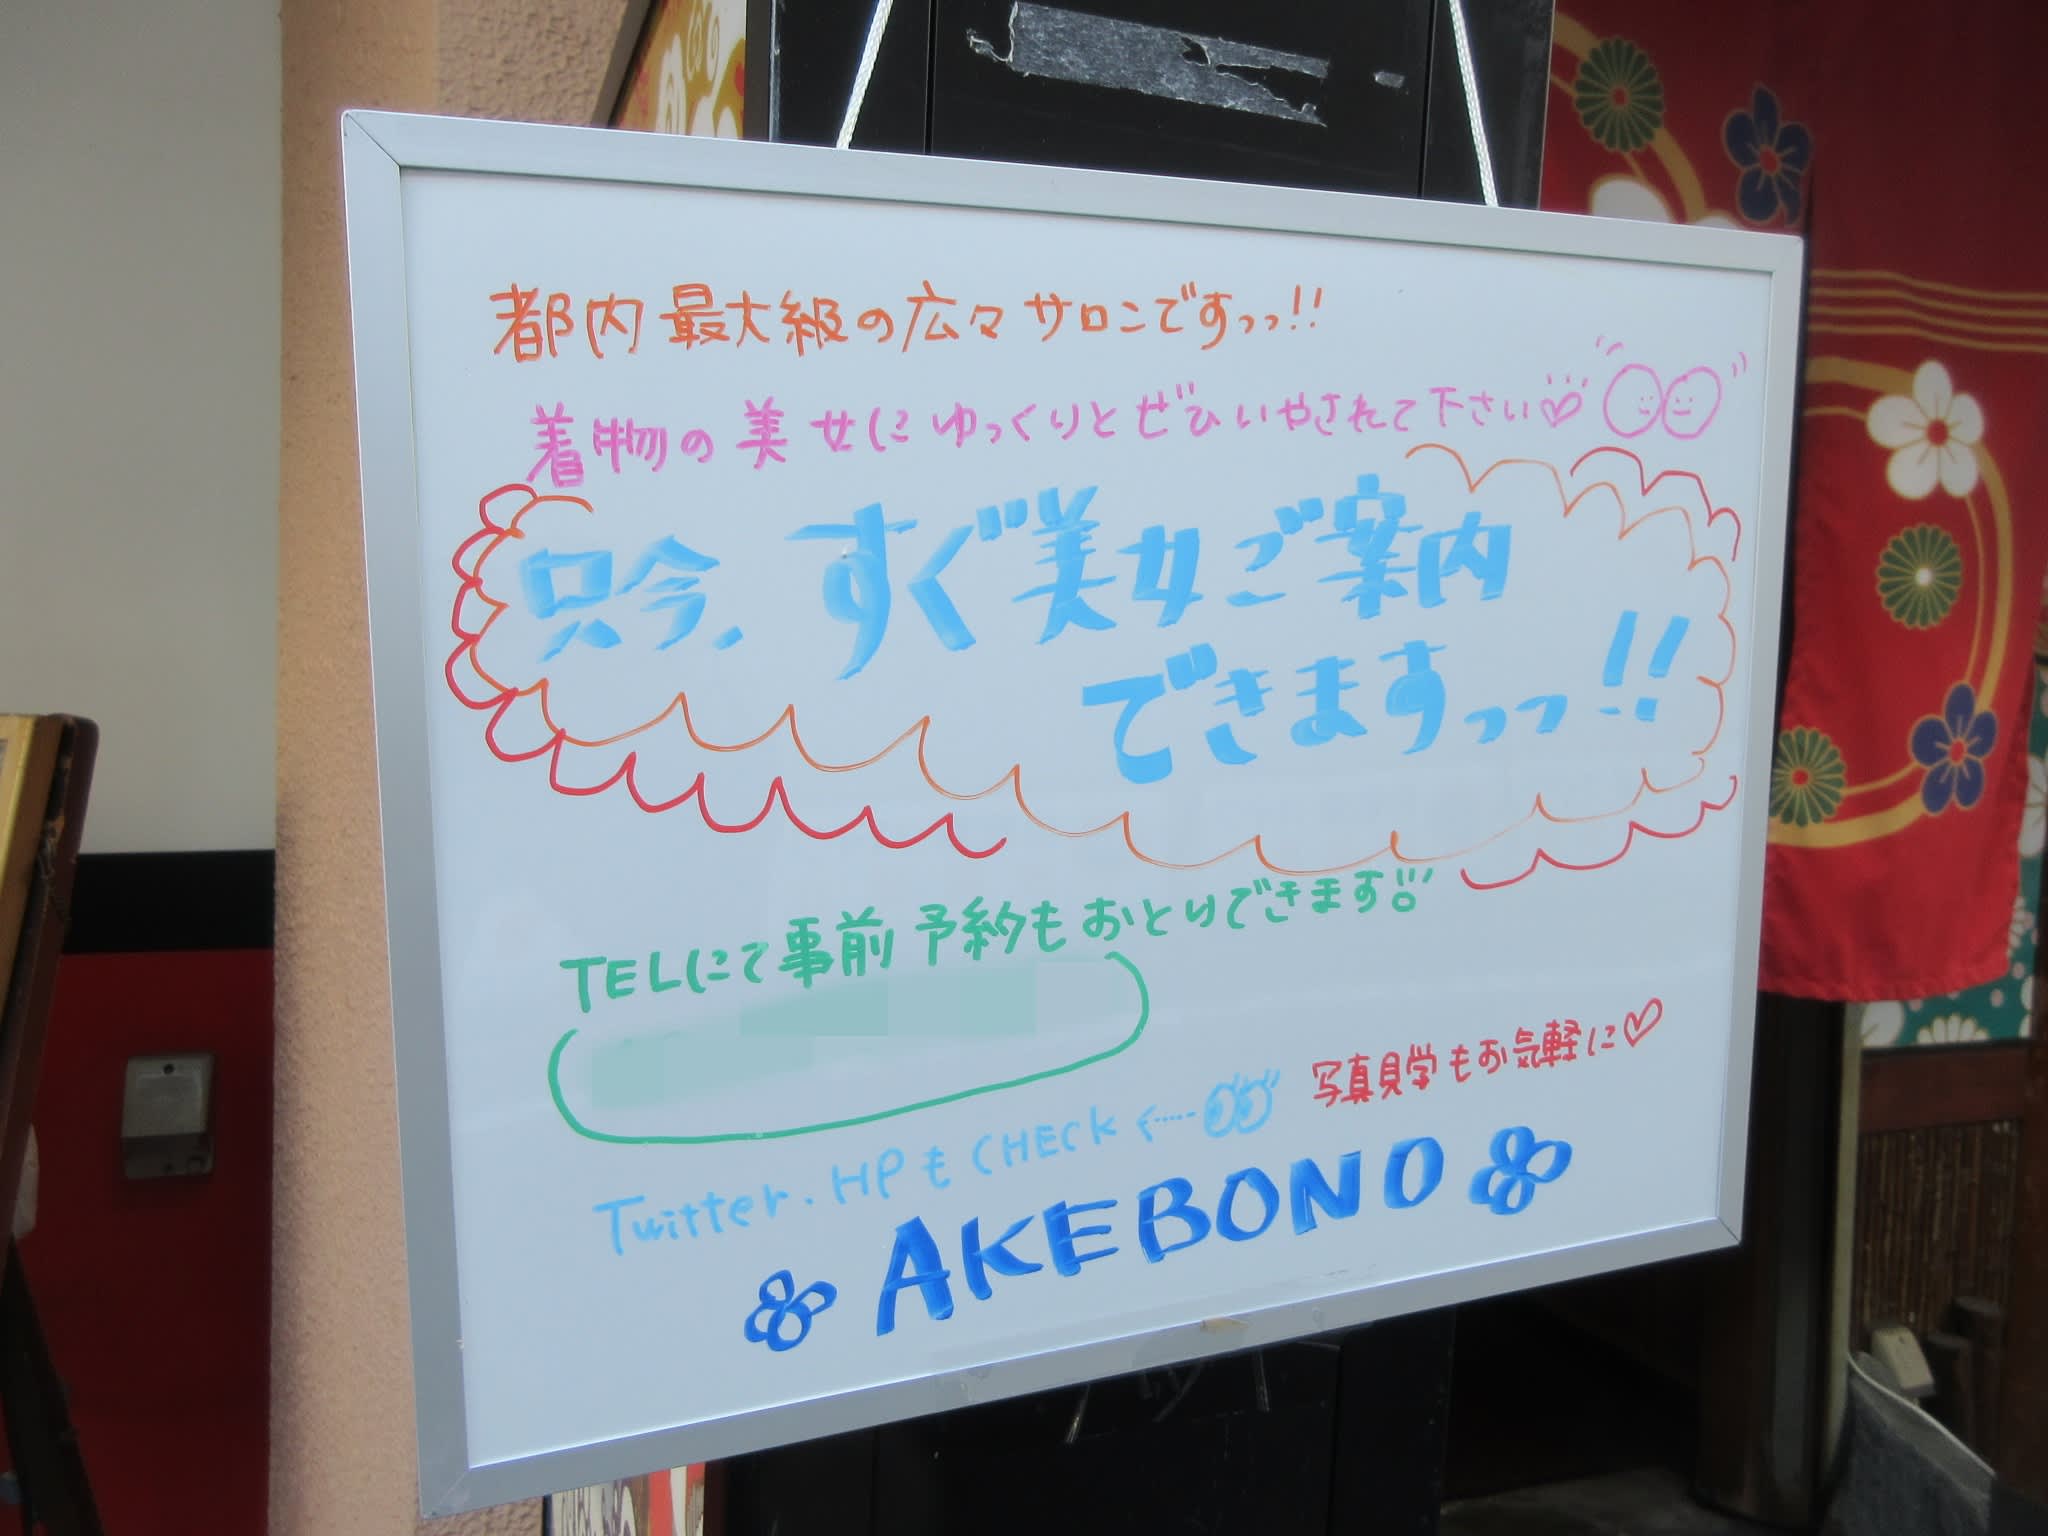 都内最大級の広々サロンですっっ!!
着物の美女にゆっくりとぜひいやされて下さい♡
只今、すぐ美女ご案内
できますっっ!!
TELにて事前予約もおとりできます
写真見学もお気軽に♡
Twitter.HPもCHECK
AKEBONO